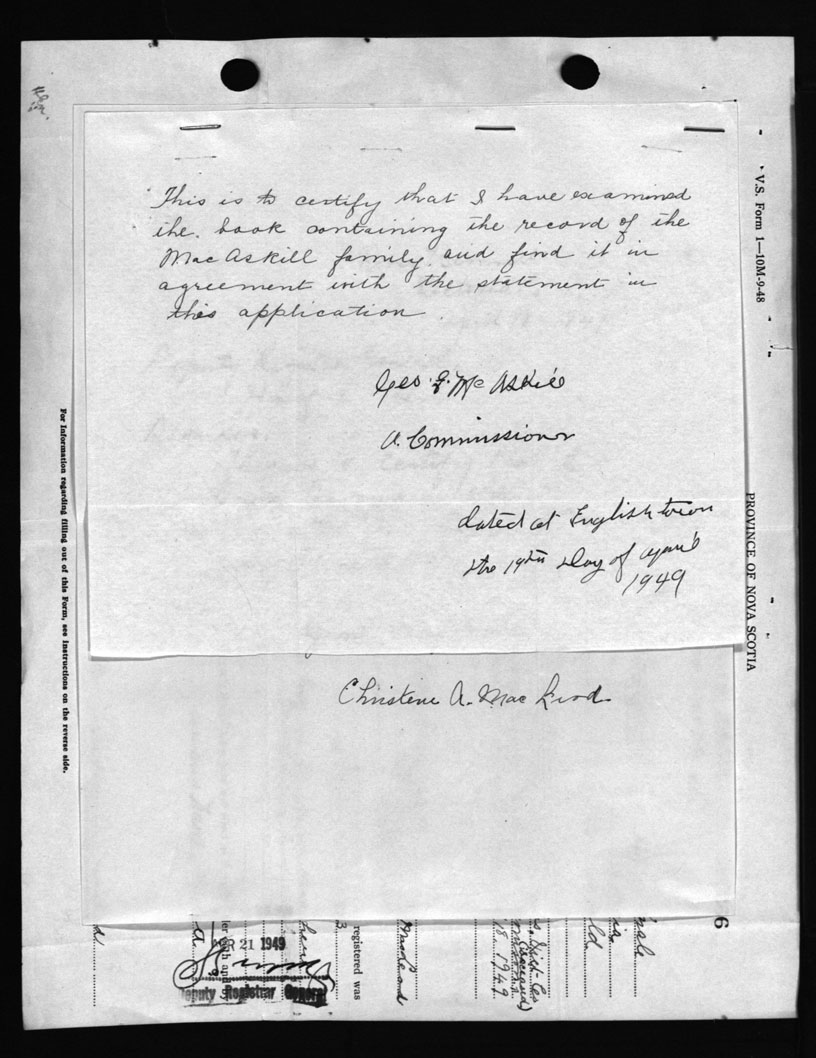 This is to certify that I have examined
the book containing the record of the
MacAskill family and find it in
agreement with the statement in
this application.
Geo. McAskill
A. Commissioner
dated at Englishtown
the 19th Day of April
1949
Christene A. Mac
V.S. Form 1—10M-9-48
PROVINCE OF NOVA SCOTIA
For information regarding filling out of this Form, see instructions on the reverse side.
6
registered was
3
APR 21 1949
Deputy Registrar General
18. 1949